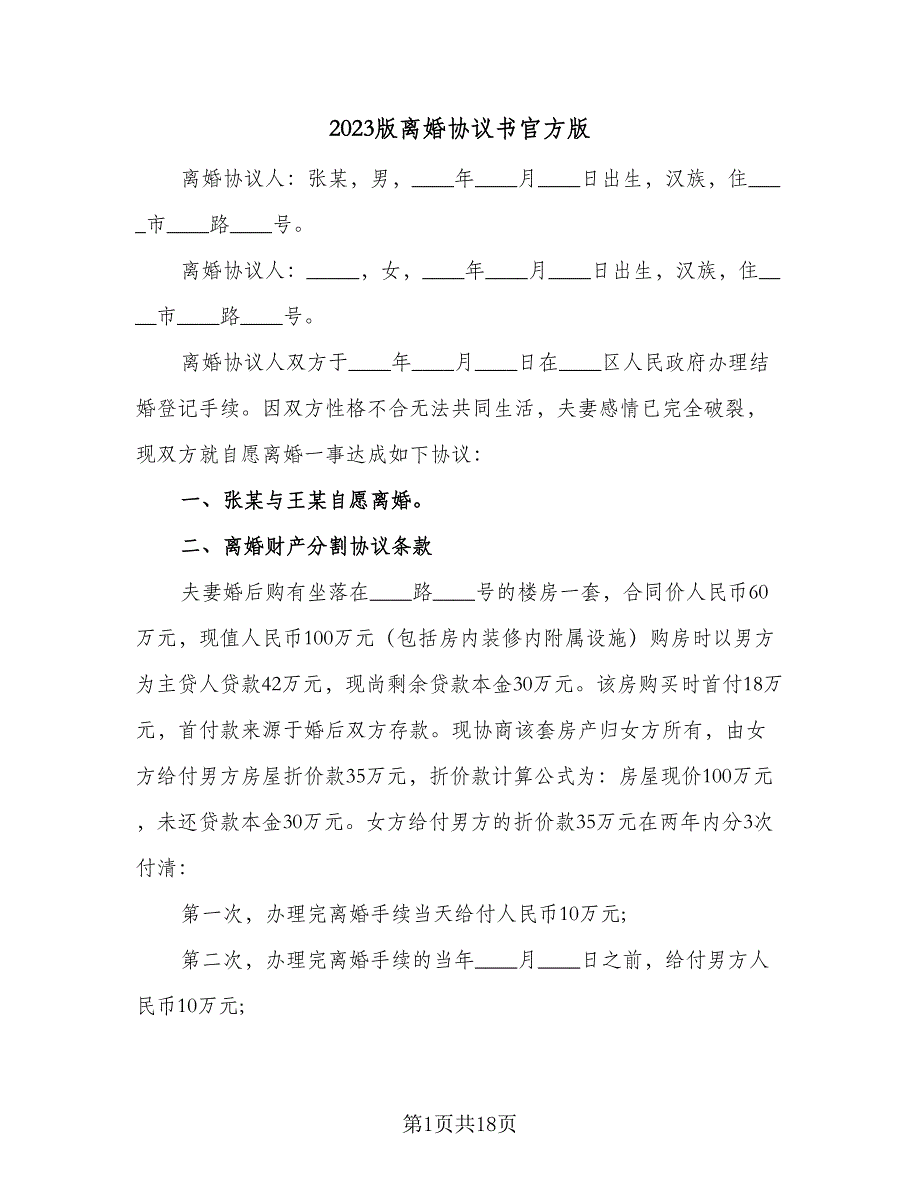 2023版离婚协议书官方版
离婚协议人：张某，男，____年____月____日出生，汉族，住___
_市____路____号。
离婚协议人：_____，女，____年____月____日出生，汉族，住__
__市____路____号。
离婚协议人双方于____年____月____日在____区人民政府办理结
婚登记手续。因双方性格不合无法共同生活，夫妻感情已完全破裂，
现双方就自愿离婚一事达成如下协议：
一、张某与王某自愿离婚。
二、离婚财产分割协议条款
夫妻婚后购有坐落在____路____号的楼房一套，合同价人民币60
万元，现值人民币100万元（包括房内装修内附属设施）购房时以男方
为主贷人贷款42万元，现尚剩余贷款本金30万元。该房购买时首付18万
元，首付款来源于婚后双方存款。现协商该套房产归女方所有，由女
方给付男方房屋折价款35万元，折价款计算公式为：房屋现价100万元
，未还贷款本金30万元。女方给付男方的折价款35万元在两年内分3次
付清：
第一次，办理完离婚手续当天给付人民币10万元;
第二次，办理完离婚手续的当年____月____日之前，给付男方人
民币10万元;
第1页共18页